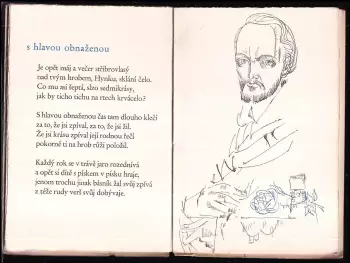 s hlavou obnaženou
Je opět máj a večer stříbrovlasý
nad tvým hrobem, Hynku, sklání čelo.
Co mu mi šeptá, slzo sedmikrásy,
jak by ticho tichu na rtech krvácelo?
S hlavou obnaženou čas tam dlouho klečí
za to, že jsi zpíval, za to, že jsi žil.
Že jsi krásu zpíval její rodnou řečí
pokorně ti na hrob růži položil.
Každý rok se v trávě jaro rozednívá
a opět si dítě s pískem v písku hraje,
jenom trochu jinak básník žal svůj zpívá
z téže rudy verš svůj dobývaje.